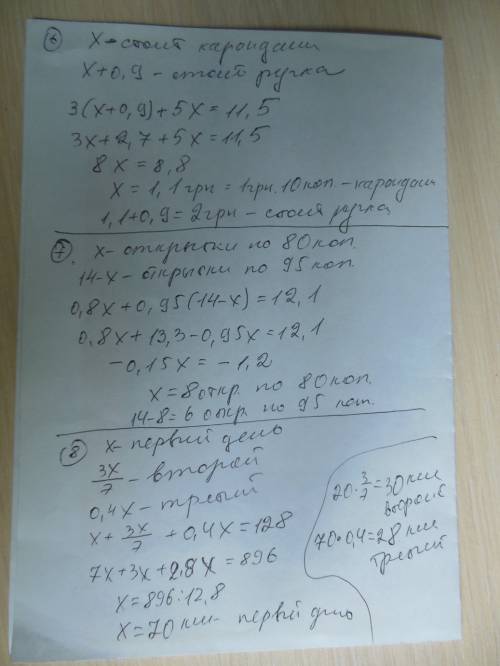 6 х - стоит карандаш
х+0,9 - стоит ручка
3(х+0,9)+5х=11,5
3х+2,7+5х=11,5
8х=8,8
х=1,1грн=1грн.10коп.-карандаш
1,1+0,9=2грн - стоит ручка
7. х- открытки по 80коп.
14-х- открытки по 95коп.
0,8х+0,95(14-х)=12,1
0,8х+13,3-0,95х=12,1
-0,15х=-1,2
х=8откр. по 80коп.
14-8=6 откр. по 95 коп.
8 х- первый день
3х/7 - второй
0,4х- третий
х+3х/7+0,4х=128
7х+3х+2,8х=896
х=896:12,8
х=70км- первый день
70·3/7=30км
второй
70·0,4=28км
третий